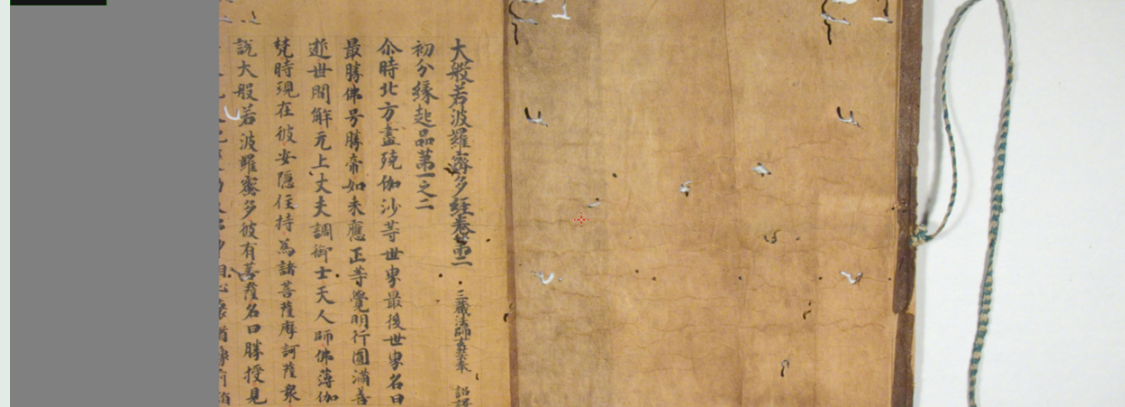 大般若波羅蜜多經卷第二
三藏法師玄奘奉 詔譯
初分緣起品第一之二
尒時北方盡殑伽沙等世界最後世界名曰
最勝佛号勝帝如來應正等覺明行圓滿善
逝世間解无上丈夫調御士天人師佛薄伽
梵時現在彼安隱住持為諸菩薩摩訶薩衆
說大般若波羅蜜多彼有菩薩名曰勝授見